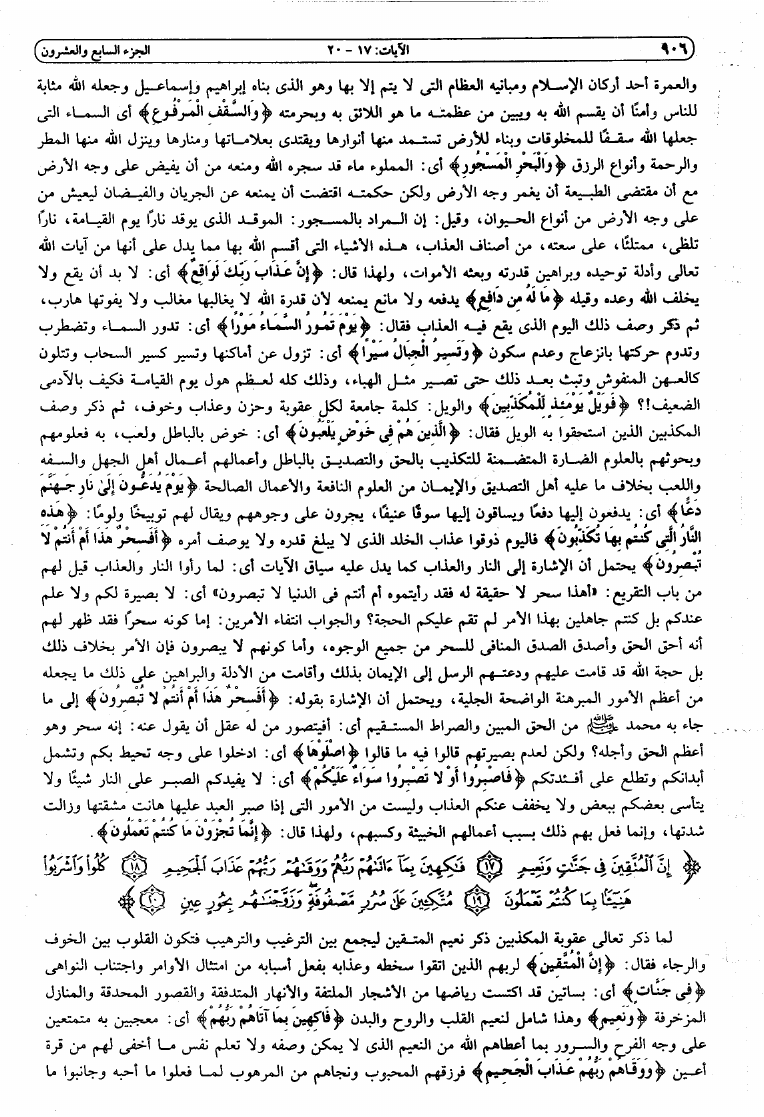 ٩٠٦ الآيات: ١٧ - ٢٠ الجزء السابع والعشرون
والعمرة أحد أركان الإسلام ومبانيه العظام التى لا يتم إلا بها وهو الذى بناه إبراهيم وإسماعيل وجعله الله مثابة
للناس وأمنًا أن يقسم الله به ويبين من عظمته ما هو اللائق به وبحرمته ﴿وَالسَّقْفِ الْمَرْفُوعِ﴾ أى السماء التى
جعلها الله سقفًا للمخلوقات وبناء للأرض تستمد منها أنوارها ويقتدى بعلاماتها ومنارها وينزل الله منها المطر
والرحمة وأنواع الرزق ﴿وَالْبَحْرِ الْمَسْجُورِ﴾ أى: المملوء ماء قد سجره الله ومنعه من أن يفيض على وجه الأرض
مع أن مقتضى الطبيعة أن يغمر وجه الأرض ولكن حكمته اقتضت أن يمنعه عن الجريان والفيضان ليعيش من
على وجه الأرض من أنواع الحيوان، وقيل: إن المراد بالمسجور: الموقد الذى يوقد نارًا يوم القيامة، نارًا
تلظى، ممتلئًا، على سعته، من أصناف العذاب، هذه الأشياء التى أقسم الله بها مما يدل على أنها من آيات الله
تعالى وأدلة توحيده وبراهين قدرته وبعثه الأموات، ولهذا قال: ﴿إِنَّ عَذَابَ رَبِّكَ لَوَاقِعٌ﴾ أى: لا بد أن يقع ولا
يخلف الله وعده وقيله ﴿مَا لَهُ مِن دَافِعٍ﴾ يدفعه ولا مانع يمنعه لأن قدرة الله لا يغالبها مغالب ولا يفوتها هارب،
ثم ذكر وصف ذلك اليوم الذى يقع فيه العذاب فقال: ﴿يَوْمَ تَمُورُ السَّمَاءُ مَوْرًا﴾ أى: تدور السماء وتضطرب
وتدوم حركتها بانزعاج وعدم سكون ﴿وَتَسِيرُ الْجِبَالُ سَيْرًا﴾ أى: تزول عن أماكنها وتسير كسير السحاب وتتلون
كالعهن المنفوش وتبث بعد ذلك حتى تصير مثل الهباء، وذلك كله لعظم هول يوم القيامة فكيف بالآدمى
الضعيف!؟ ﴿فَوَيْلٌ يَوْمَئِذٍ لِلْمُكَذِّبِينَ﴾ والويل: كلمة جامعة لكل عقوبة وحزن وعذاب وخوف، ثم ذكر وصف
المكذبين الذين استحقوا به الويل فقال: ﴿الَّذِينَ هُمْ فِي خَوْضٍ يَلْعَبُونَ﴾ أى: خوض بالباطل ولعب، به فعلومهم
وبحوثهم بالعلوم الضارة المتضمنة للتكذيب بالحق والتصديق بالباطل وأعمالهم أعمال أهل الجهل والسفه
واللعب بخلاف ما عليه أهل التصديق والإيمان من العلوم النافعة والأعمال الصالحة ﴿يَوْمَ يُدَعُّونَ إِلَىٰ نَارِ جَهَنَّمَ
دَعًّا﴾ أى: يدفعون إليها دفعًا ويساقون إليها سوقًا عنيفًا، يجرون على وجوههم ويقال لهم توبيخًا ولومًا: ﴿هَذِهِ
النَّارُ الَّتِي كُنتُم بِهَا تُكَذِّبُونَ﴾ فاليوم ذوقوا عذاب الخلد الذى لا يبلغ قدره ولا يوصف أمره ﴿أَفَسِحْرٌ هَذَا أَمْ أَنتُمْ لا
تُبْصِرُونَ﴾ يحتمل أن الإشارة إلى النار والعذاب كما يدل عليه سياق الآيات أى: لما رأوا النار والعذاب قيل لهم
من باب التقريع: «أهذا سحر لا حقيقة له فقد رأيتموه أم أنتم فى الدنيا لا تبصرون» أى: لا بصيرة لكم ولا علم
عندكم بل كنتم جاهلين بهذا الأمر لم تقم عليكم الحجة؟ والجواب انتفاء الأمرين: إما كونه سحرًا فقد ظهر لهم
أنه أحق الحق وأصدق الصدق المنافى للسحر من جميع الوجوه، وأما كونهم لا يبصرون فإن الأمر بخلاف ذلك
بل حجة الله قد قامت عليهم ودعتهم الرسل إلى الإيمان بذلك وأقامت من الأدلة والبراهين على ذلك ما يجعله
من أعظم الأمور المبرهنة الواضحة الجلية، ويحتمل أن الإشارة بقوله: ﴿أَفَسِحْرٌ هَذَا أَمْ أَنتُمْ لا تُبْصِرُونَ﴾ إلى ما
جاء به محمد ﷺ من الحق المبين والصراط المستقيم أى: أفيتصور من له عقل أن يقول عنه: إنه سحر وهو
أعظم الحق وأجله؟ ولكن لعدم بصيرتهم قالوا فيه ما قالوا ﴿اصْلَوْهَا﴾ أى: ادخلوا على وجه تحيط بكم وتشمل
أبدانكم وتطلع على أفئدتكم ﴿فَاصْبِرُوا أَوْ لا تَصْبِرُوا سَوَاءٌ عَلَيْكُمْ﴾ أى: لا يفيدكم الصبر على النار شيئًا ولا
يتأسى بعضكم ببعض ولا يخفف عنكم العذاب وليست من الأمور التى إذا صبر العبد عليها هانت مشقتها وزالت
شدتها، وإنما فعل بهم ذلك بسبب أعمالهم الخبيثة وكسبهم، ولهذا قال: ﴿إِنَّمَا تُجْزَوْنَ مَا كُنتُمْ تَعْمَلُونَ﴾.
﴿إِنَّ ٱلْمُتَّقِينَ فِى جَنَّٰتٍ وَنَعِيمٍ ١٧ فَٰكِهِينَ بِمَآ ءَاتَىٰهُمْ رَبُّهُمْ وَوَقَىٰهُمْ رَبُّهُمْ عَذَابَ ٱلْجَحِيمِ ١٨ كُلُوا۟ وَٱشْرَبُوا۟
هَنِيٓـًٔۢا بِمَا كُنتُمْ تَعْمَلُونَ ١٩ مُتَّكِـِٔينَ عَلَىٰ سُرُرٍ مَّصْفُوفَةٍ ۖ وَزَوَّجْنَٰهُم بِحُورٍ عِينٍ ٢٠﴾
لما ذكر تعالى عقوبة المكذبين ذكر نعيم المتقين ليجمع بين الترغيب والترهيب فتكون القلوب بين الخوف
والرجاء فقال: ﴿إِنَّ الْمُتَّقِينَ﴾ لربهم الذين اتقوا سخطه وعذابه بفعل أسبابه من امتثال الأوامر واجتناب النواهى
﴿فِي جَنَّاتٍ﴾ أى: بساتين قد اكتست رياضها من الأشجار الملتفة والأنهار المتدفقة والقصور المحدقة والمنازل
المزخرفة ﴿وَنَعِيمٍ﴾ وهذا شامل لنعيم القلب والروح والبدن ﴿فَاكِهِينَ بِمَا آتَاهُمْ رَبُّهُمْ﴾ أى: معجبين به متمتعين
على وجه الفرح والسرور بما أعطاهم الله من النعيم الذى لا يمكن وصفه ولا تعلم نفس ما أخفى لهم من قرة
أعين ﴿وَوَقَاهُمْ رَبُّهُمْ عَذَابَ الْجَحِيمِ﴾ فرزقهم المحبوب ونجاهم من المرهوب لما فعلوا ما أحبه وجانبوا ما